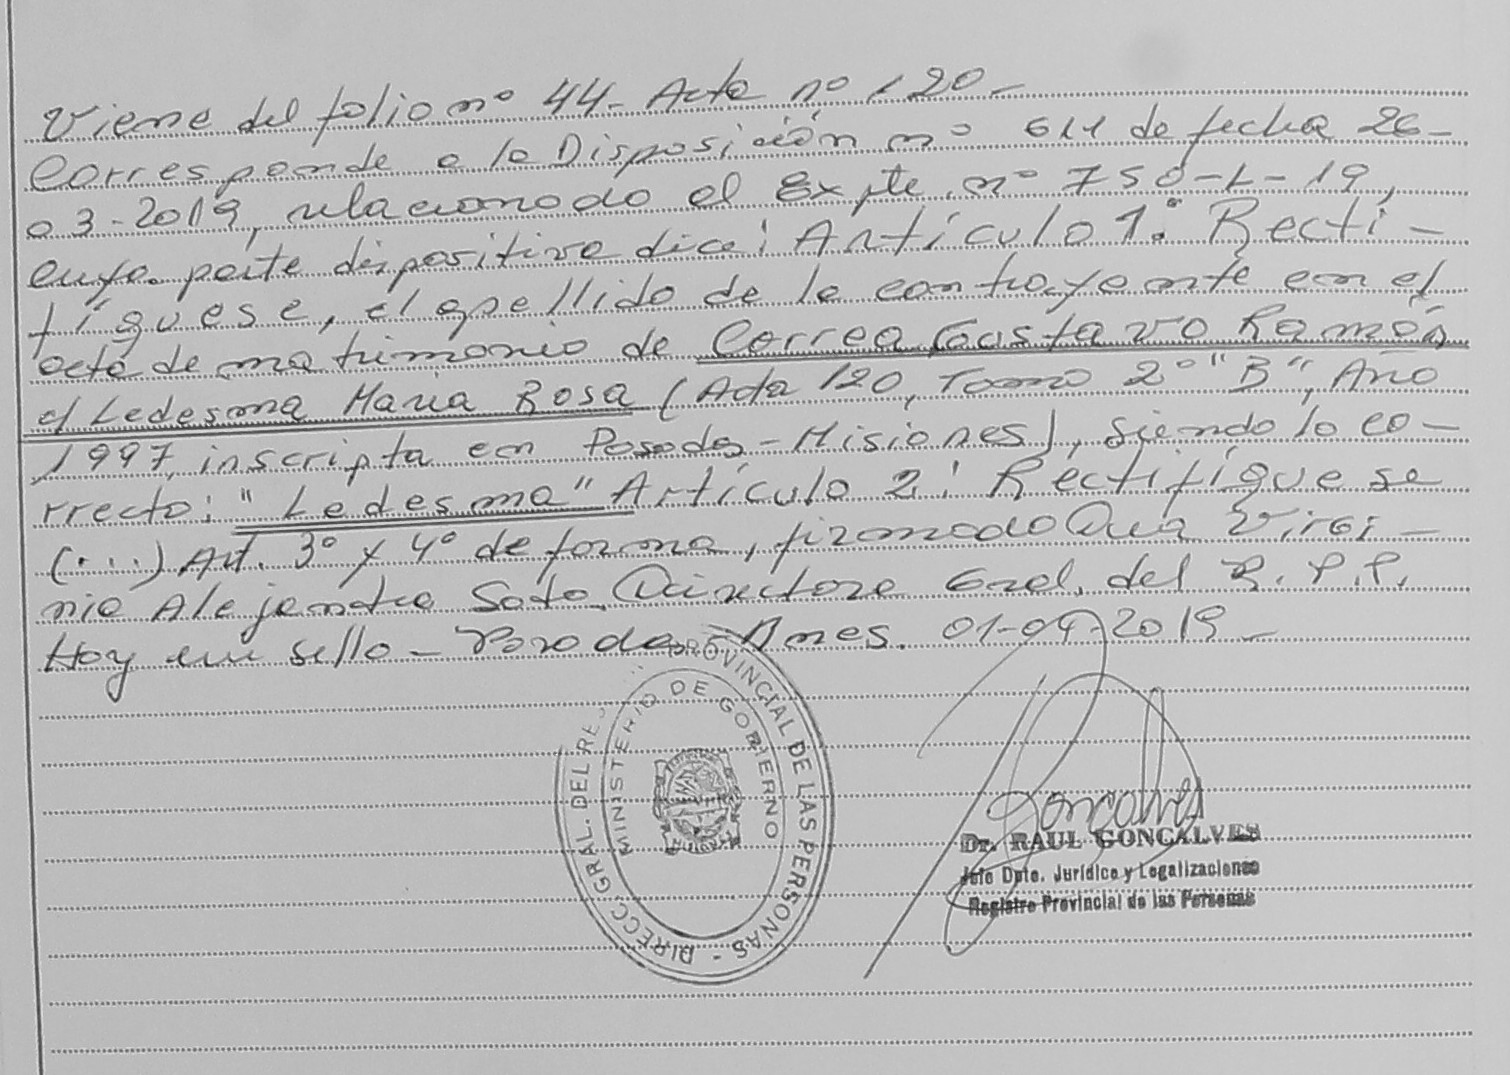 Viene del folio nº 44- Acta nº 120-
Corresponde a la Disposición nº 611 de fecha 26-
03-2019, relacionado el Expte. nº 750-L-19,
cuya parte dispositiva dice: Artículo 1º: Recti-
fíquese, el apellido de la contrayente en el
acta de matrimonio de Correa, Gustavo Ramón
c/ Ledesma Maria Rosa (Acta 120, Tomo 2º "B", Año
1997, inscripta en Posadas-Misiones), siendo lo co-
rrecto: "Ledesma" Artículo 2: Rectifíquese
(...) Art. 3º y 4º de forma, firmado Dra Virgi-
nia Alejandra Soto. Directora Gral. del R.P.P.
Hoy un sello - Posadas Mnes. 01-04-2019-
DIRECC. GRAL. DEL PROVINCIAL DE LAS PERSONAS -
MINISTERIO DE GOBIERNO
Goncalves
Dr. RAUL GONCALVES
Jefe Dpto. Jurídico y Legalizaciones
Registro Provincial de las Personas